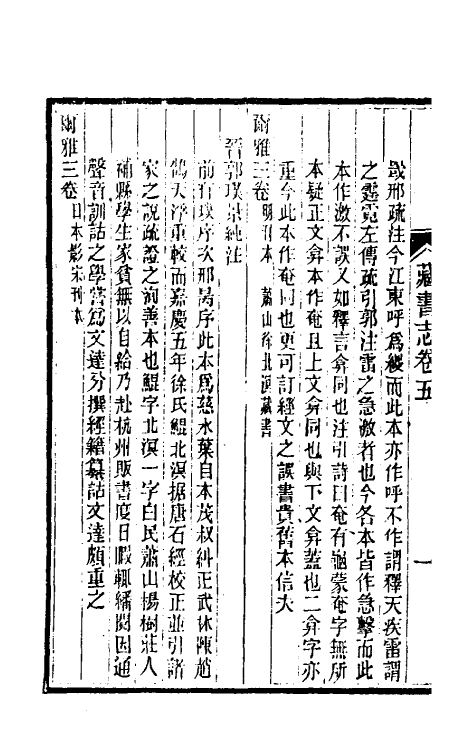 藏書志卷五
一
哉邢疏注今江東呼為綟而此本亦作呼不作謂釋天疾雷謂
之霆霓左傳疏引郭注雷之急激者也今各本皆作急擊而此
本作激不誤又如釋言弇同也注引詩曰奄有龜蒙奄字無所
本疑正文弇本作奄且上文弇同也與下文弇蓋也二弇字亦
重今此本作奄同也更可訂經文之誤書貴舊本信夫
爾雅三卷 明刊本 蕭山徐北溟藏書
晉郭璞景純注
前有璞序次邢昺序此本為慈水葉自本茂叔糾正武林陳趙
鵠天淳重較而嘉慶五年徐氏鯤北溟据唐石經校正並引諸
家之說疏證之洵善本也鯤字北溟一字白民蕭山楊樹莊人
補縣學生家貧無以自給乃赴杭州販書度日暇輒繙閱因通
聲音訓詁之學嘗為文達分撰經籍籑詁文達頗重之
爾雅三卷 日本影宋刊本